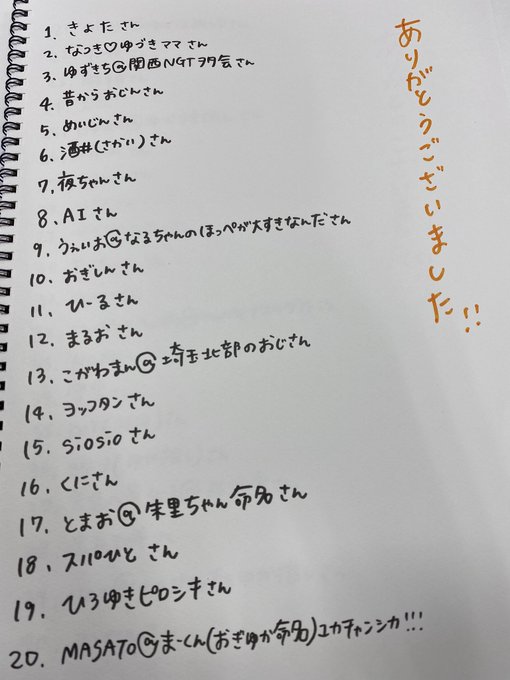 1. きょたさん
2. なつき♡ゆづきママさん
3. ゆずきち@関西NGTヲタ会さん
4. 昔からおじんさん
5. めいじんさん
6. 酒井(さかい)さん
7. 夜ちゃんさん
8. AIさん
9. うぇいお@なるちゃんのほっぺが大すきなんださん
10. おぎしんさん
11. ひーるさん
12. まるおさん
13. こがわまん@埼玉北部のおじさん
14. ヨッフタンさん
15. siosioさん
16. くにさん
17. とまお@朱里ちゃん命名さん
18. スパひとさん
19. ひろゆきピロシキさん
20. MASATO@まーくん(おぎゆか命名)ユカチャンシカ!!!
ありがとうございました!!